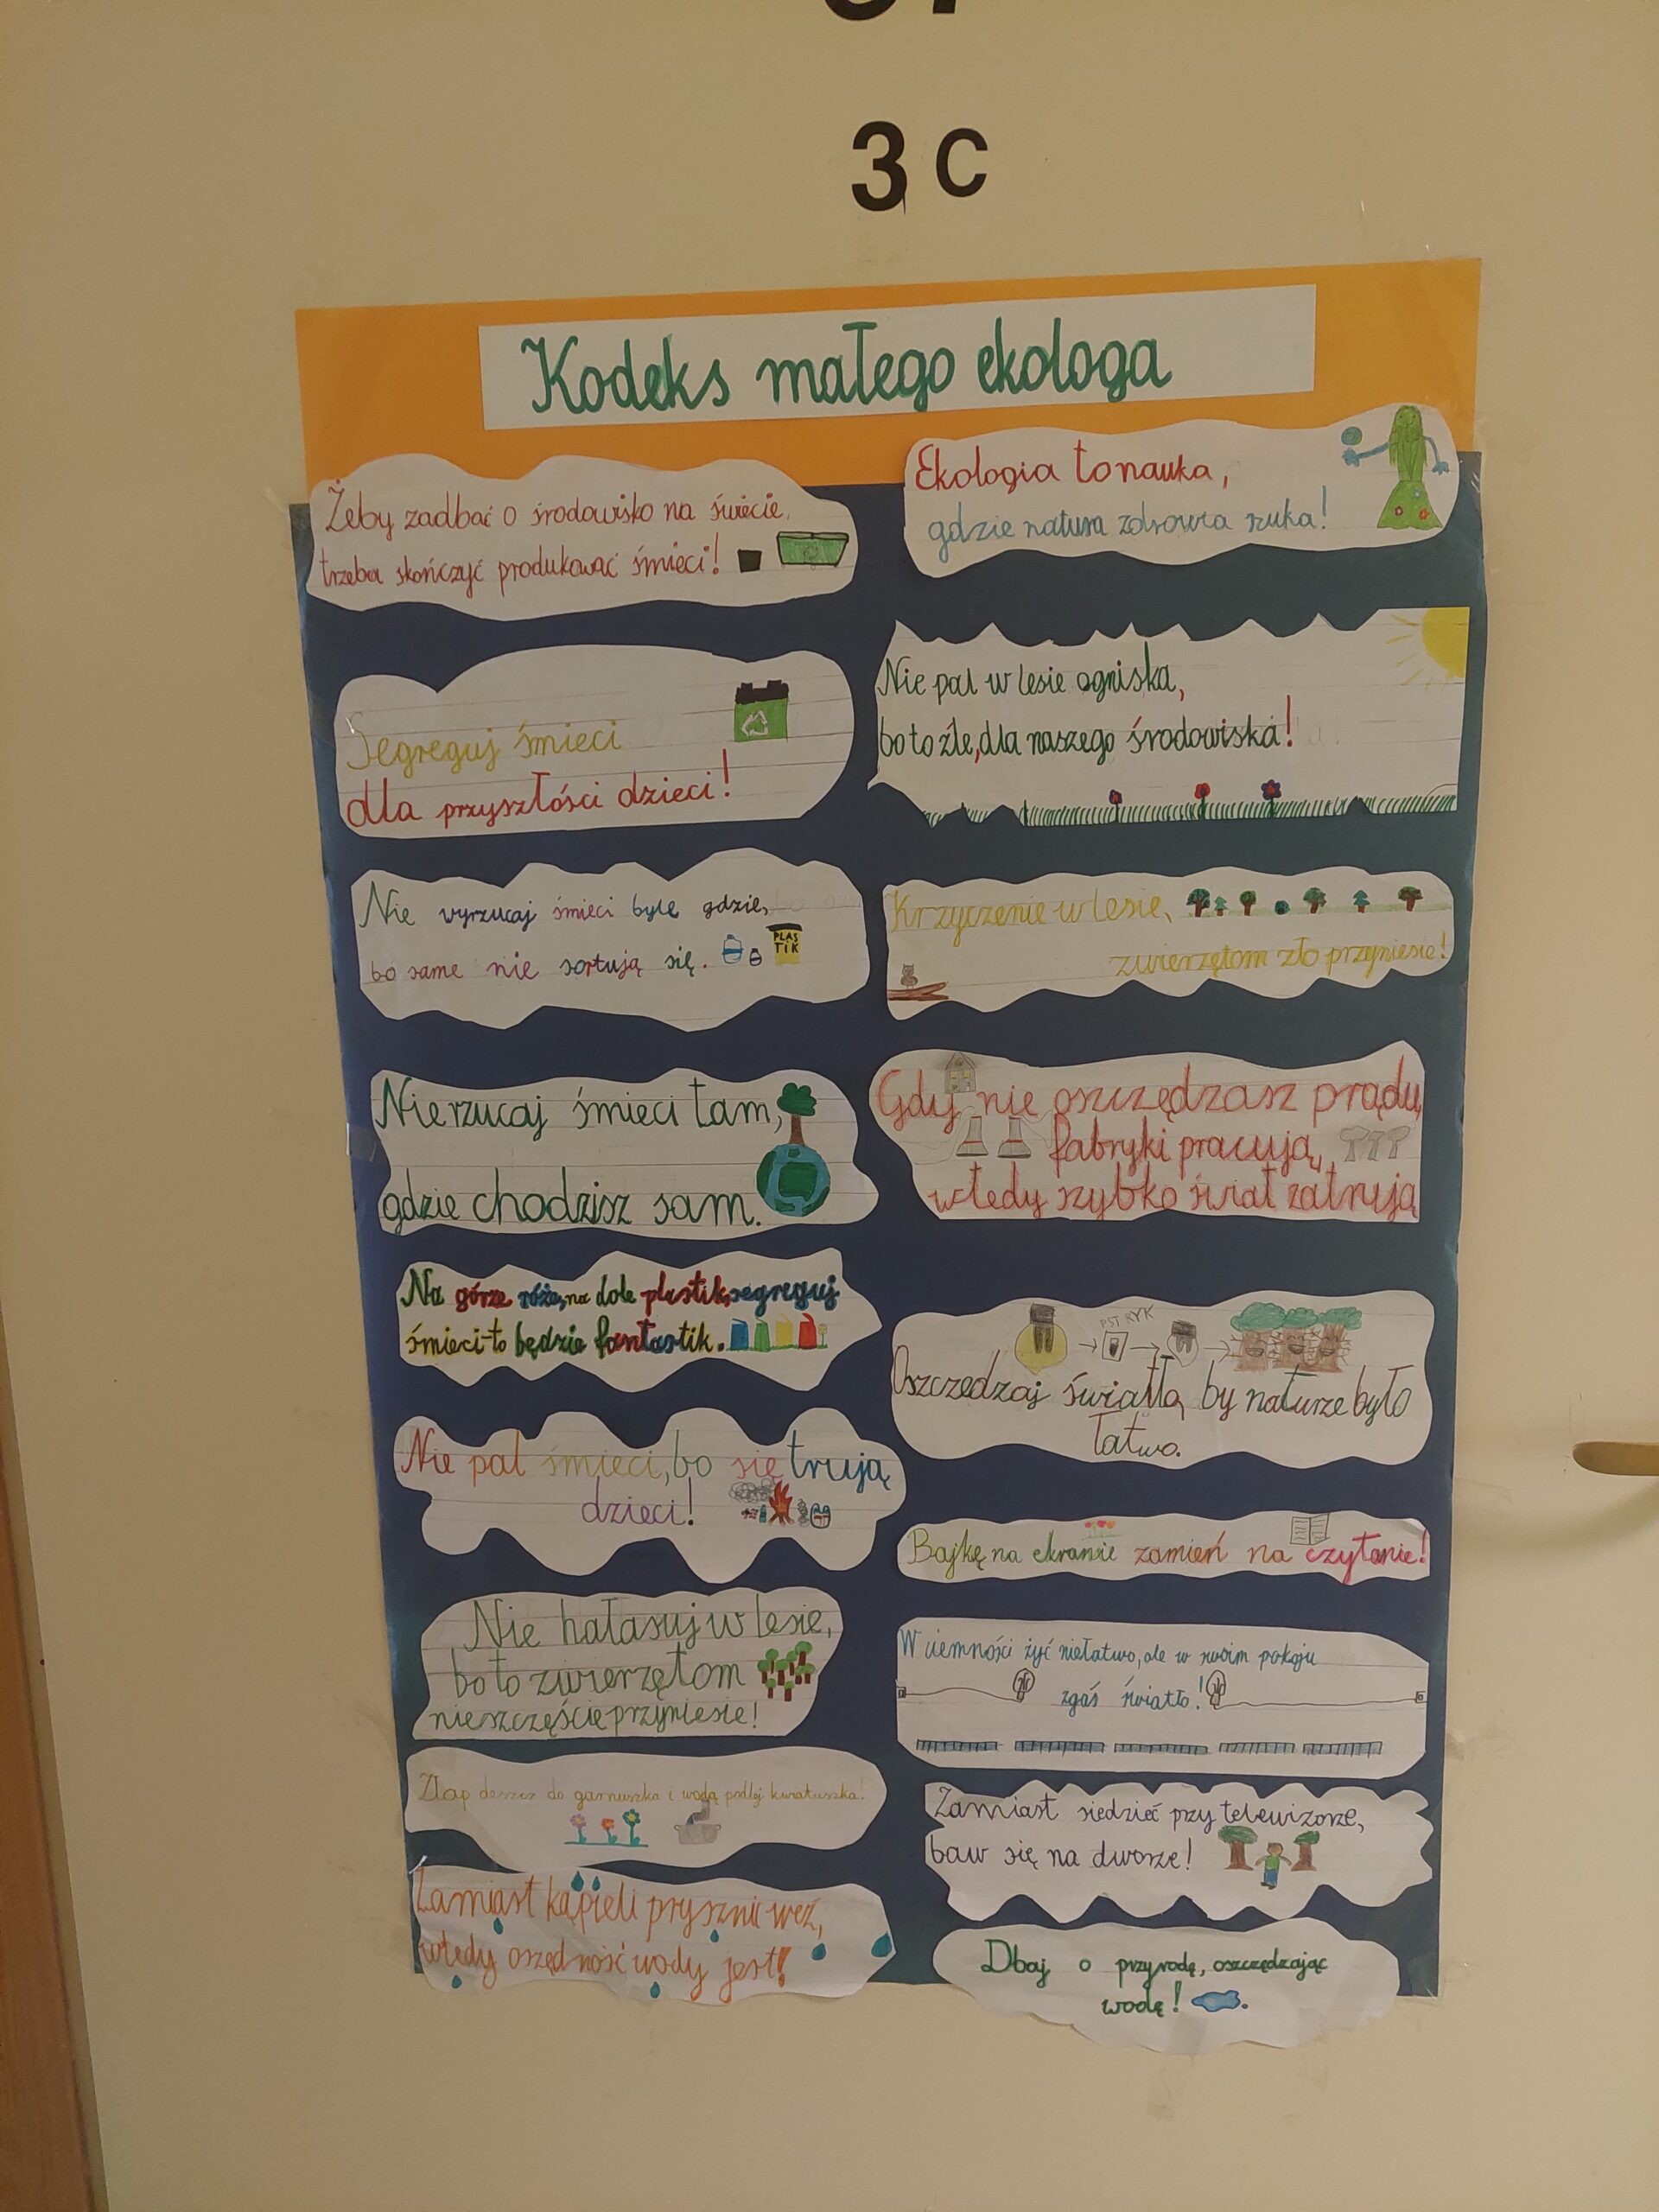 3C
Kodeks małego ekologa
Żeby zadbać o środowisko na świecie,
trzeba skończyć produkować śmieci!
Segreguj śmieci
dla przyszłości dzieci!
Nie wyrzucaj śmieci byle gdzie,
bo same nie sortują się.
PLAS
TIK
Nie rzucaj śmieci tam,
gdzie chodzisz sam.
Na górze róże, na dole plastik, segreguj
śmieci-to będzie fantastik.
Nie pal śmieci, bo się trują
dzieci!
Nie hałasuj w lesie,
bo to zwierzętom
nieszczęście przyniesie!
Złap deszcz do garnuszka i wodą podlej kwiatuszka!
Zamiast kąpieli prysznic weź,
wtedy oszędność wody jest!
Ekologia to nauka,
gdzie natura zdrowia szuka!
Nie pal w lesie ogniska,
bo to źle, dla naszego środowiska!
Krzyczenie w lesie,
zwierzętom zło przyniesie!
Gdy nie oszczędzasz prądu,
fabryki pracują,
wtedy szybko świat zatrują
PSTRYK
Oszczędzaj światło, by naturze było
łatwo.
Bajkę na ekranie zamień na czytanie!
W ciemności żyć niełatwo, ale w swoim pokoju
zgaś światło!
Zamiast siedzieć przy telewizorze,
baw się na dworze!
Dbaj o przyrodę, oszczędzając
wodę!